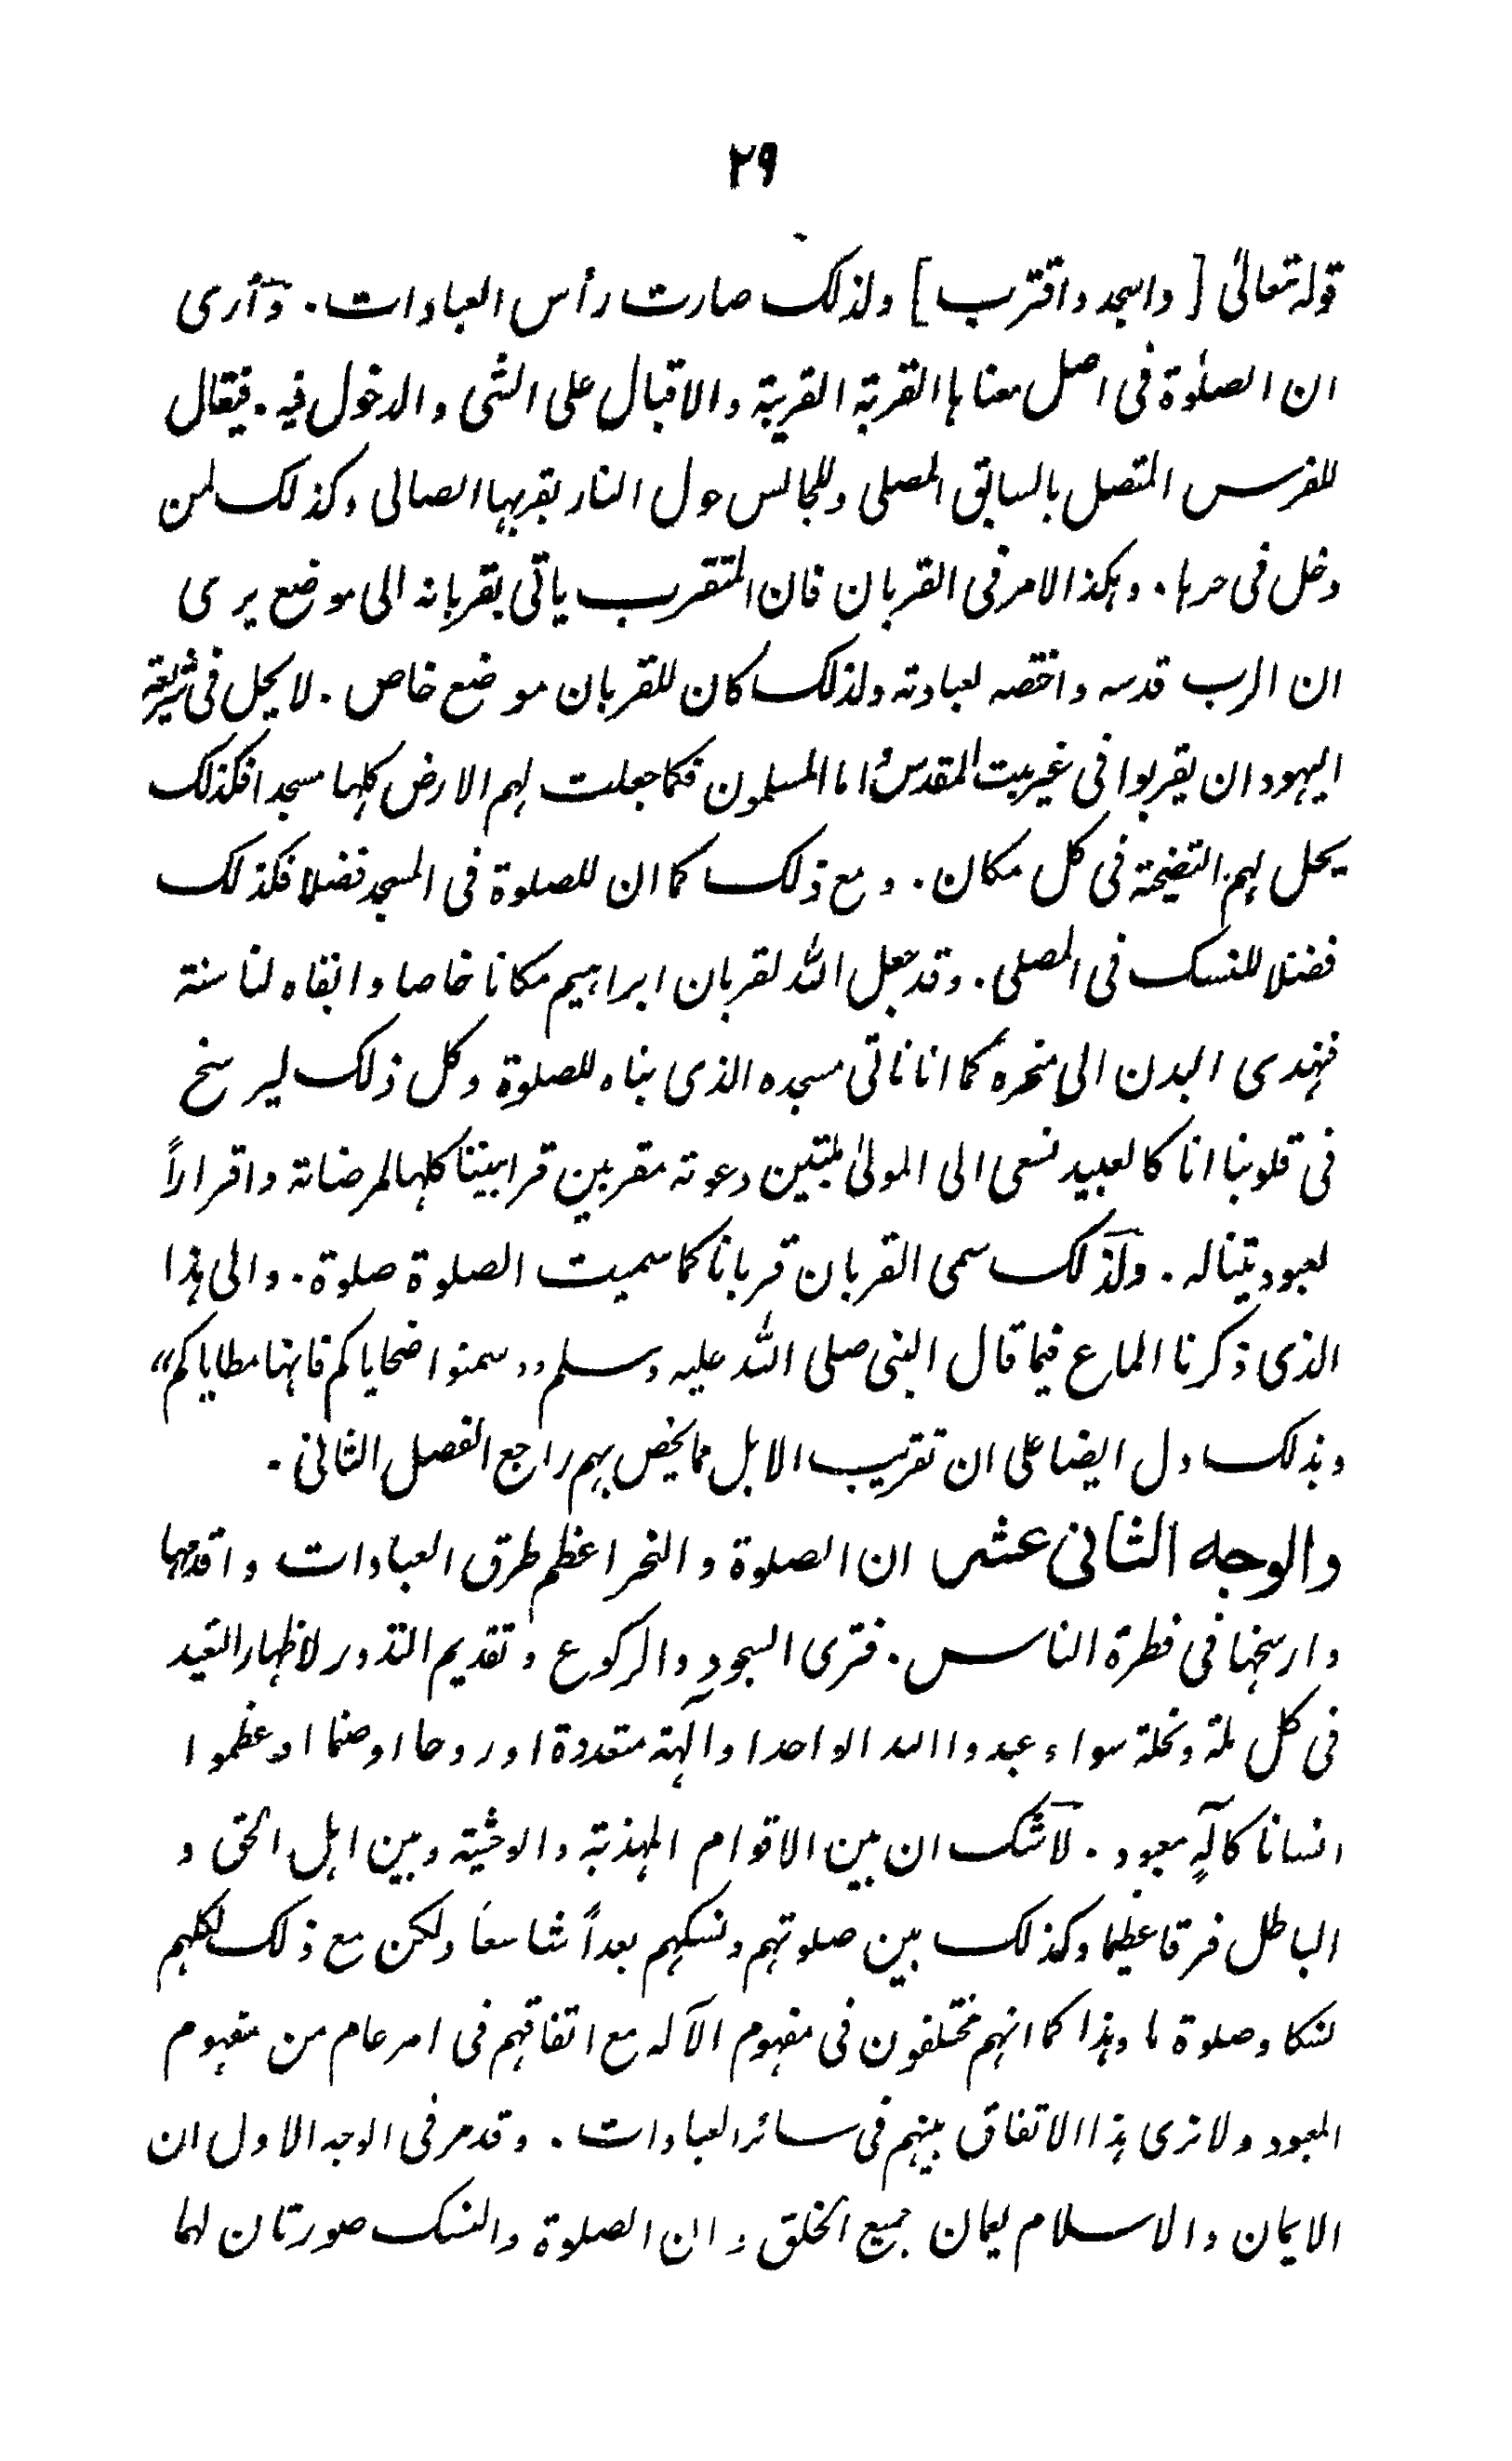 ٢٩
قوله تعالىٰ [واسجد واقترب] ولذلك صارت رأس العبادات. وأرى
ان الصلوٰة فى اصل معناها القربة القريبة والاقبال على الشى والدخول فيه. فيقال
للفرس المتصل بالسابق المصلى وللجالس حول النار بقربها الصالى وكذلك لمن
دخل فى حرها. وهكذا الامر فى القربان فان المتقرب ياتى بقربانه الى موضع يرى
ان الرب قدسه واختصه لعبادته ولذلك كان للقربان موضع خاص. لا يحل فى شريعة
اليهود ان يقربوا فى غير بيت المقدس واما المسلمون فكما جعلت لهم الارض كلها مسجدا فكذلك
يحل لهم التضحية فى كل مكان. ومع ذلك كما ان للصلوة فى المسجد فضلا فكذلك
فضلا للنسك فى المصلى. وقد جعل الله لقربان ابراهيم مكانا خاصا وابقاه لنا سنة
فنهدى البدن الى منحره كما انا ناتى مسجده الذى بناه للصلوة وكل ذلك ليرسخ
فى قلوبنا انا كالعبيد نسعى الى المولىٰ ملبّين دعوته مقربين قرابيننا كلها لمرضاته واقراراً
لعبوديتنا له. ولذلك سمى القربان قربانا كما سميت الصلوة صلوة. والى هذا
الذى ذكرنا الماع فيما قال النبى صلى الله عليه وسلم ،،سمنوا ضحاياكم فانها مطاياكم،،
وبذلك دل ايضا على ان تقريب الابل مما يخص بهم راجع الفصل الثانى.
والوجه الثانى عشر ان الصلوة والنحر اعظم طرق العبادات واقدمها
وارسخها فى فطرة الناس. فترى السجود والركوع وتقديم النذور لاظهار التعبد
فى كل ملة ونحلة سواء عبدوا الله الواحد او آلهة متعددة او روحا او صنما او عظموا
انسانا كآلهٍ معبود. لاشك ان بين الاقوام المهذبة والوحشية وبين اهل الحق و
الباطل فرقا عظيما وكذلك بين صلوتهم ونسكهم بعداً شاسعاً ولكن مع ذلك لكلهم
نسكا وصلوة ما وهذا كما انهم مختلفون فى مفهوم الآله مع اتفاقهم فى امر عام من مفهوم
المعبود ولا نرى هذا الاتفاق بينهم فى سائر العبادات. وقد مر فى الوجه الاول ان
الايمان والاسلام يعمان جميع الخلق وان الصلوة والنسك صورتان لهما